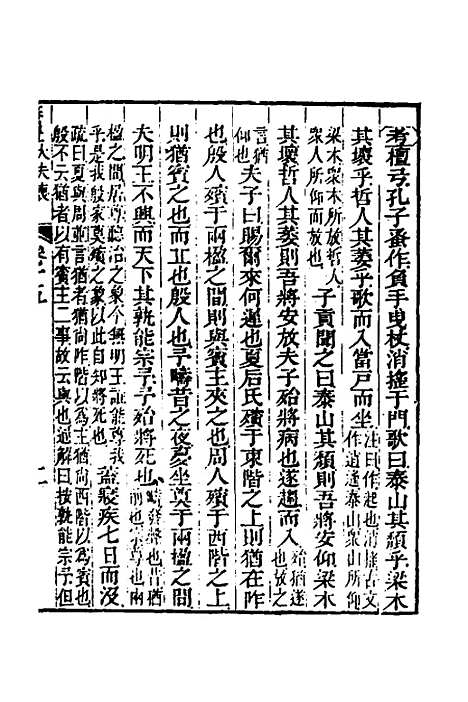 考檀弓孔子蚤作負手曳杖消搖于門歌曰泰山其頹乎梁木
其壞乎哲人其萎乎歌而入當戶而坐注曰作起也消搖古文作逍遙泰山眾山所仰
梁木眾木所放哲人眾人所仰而放也子貢聞之曰泰山其頹則吾將安仰梁木
其壞哲人其萎則吾將安放夫子殆將病也遂趨而入殆猶遂也放之
言猶仰也夫子曰賜爾來何遲也夏后氏殯于東階之上則猶在阼
也殷人殯于兩楹之間則與賓主夾之也周人殯于西階之上
則猶賓之也而丘也殷人也予疇昔之夜夢坐奠于兩楹之間
夫明王不興而天下其孰能宗予予殆將死也疇發聲也昔猶前也兩
楹之間居尊聽治之象今無明王誰能尊我乎是我殷家奠殯之象以此自知將死也蓋寢疾七日而沒
疏曰夏與周並言猶者猶尚阼階以為主猶尚西階以為賓也
殷不云猶者以有賓主二事故云與也通解曰按孰能宗予但